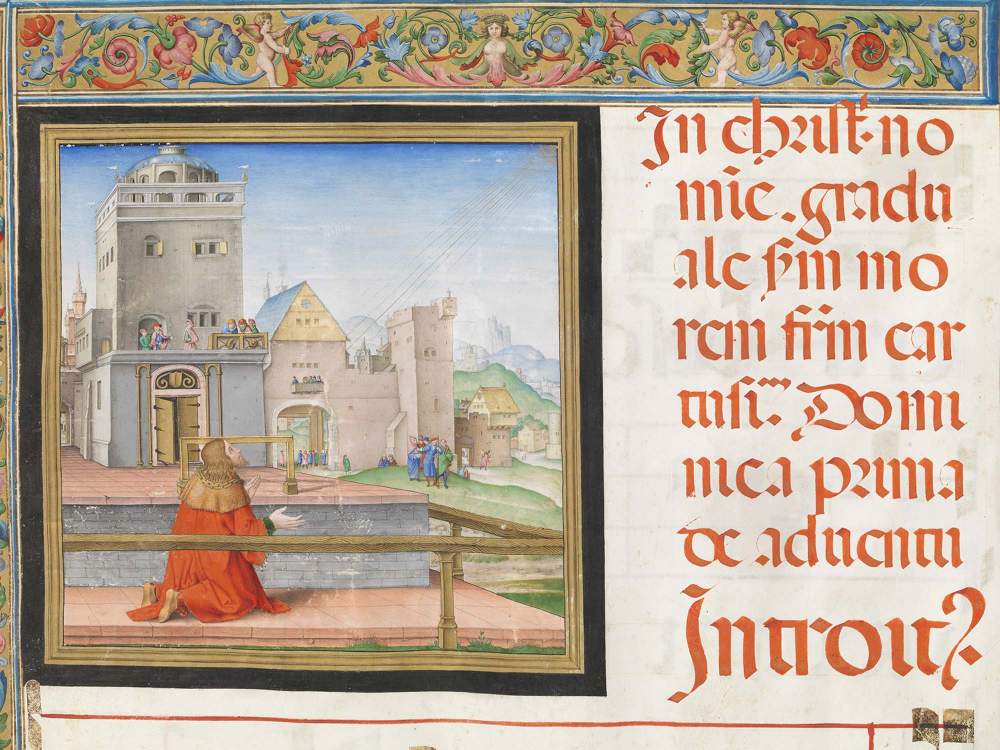 In chriſt. no
mīe. gradu
ale ſm mo
rem frm̄ car
tuſiēm Domi
nica prima
de aduentu
Introit?